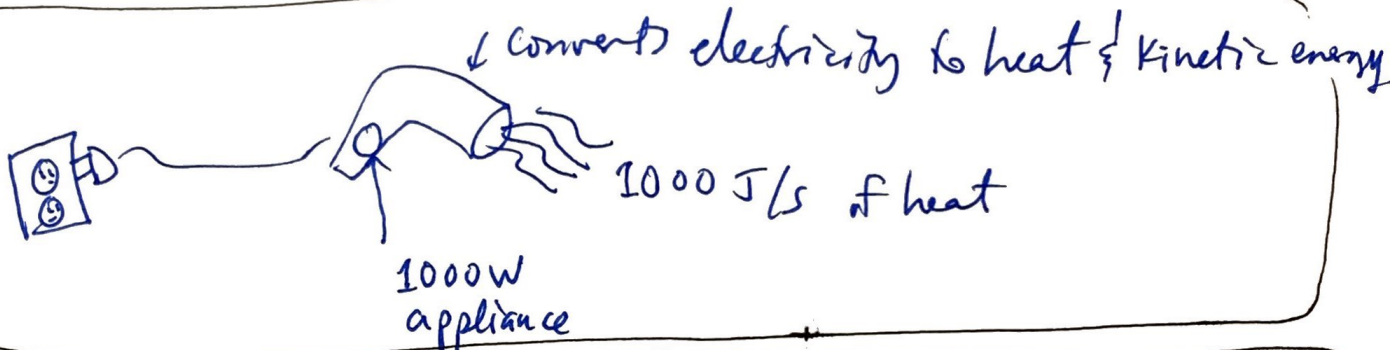 ↓ converts electricity to heat & kinetic energy
1000 J/s of heat
1000W
appliance